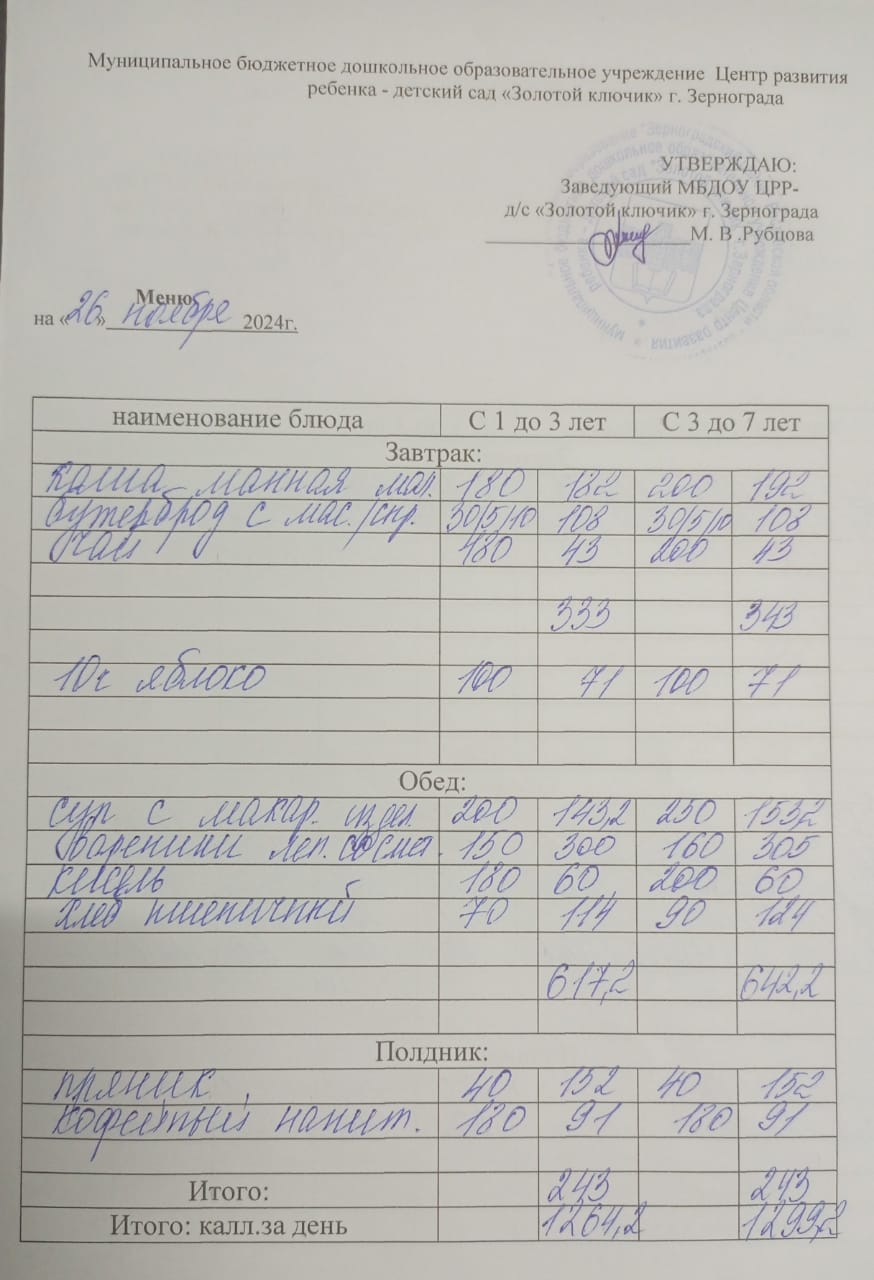 Муниципальное бюджетное дошкольное образовательное учреждение Центр развития
ребенка - детский сад «Золотой ключик» г. Зернограда
УТВЕРЖДАЮ:
Заведующий МБДОУ ЦРР-
д/с «Золотой ключик» г. Зернограда
М. В .Рубцова
Меню
на «26» ноября 2024г.
наименование блюда С 1 до 3 лет С 3 до 7 лет
Завтрак:
Каша манная мол. 180 182 200 192
Бутерброд с мас./ 30/5/10 108 30/5/10 108
Чай 180 43 200 43
333 343
10ч яблоко 100 71 100 71
Обед:
суп с макар. издел. 200 143,2 250 153,2
Вареники лен. со смет. 150 300 160 305
кисель 180 60 200 60
хлеб пшеничный 70 114 90 124
617,2 642,2
Полдник:
пряник 40 152 40 152
кофейный напит. 180 91 180 91
Итого: 243 243
Итого: калл.за день 1264,2 1299,2